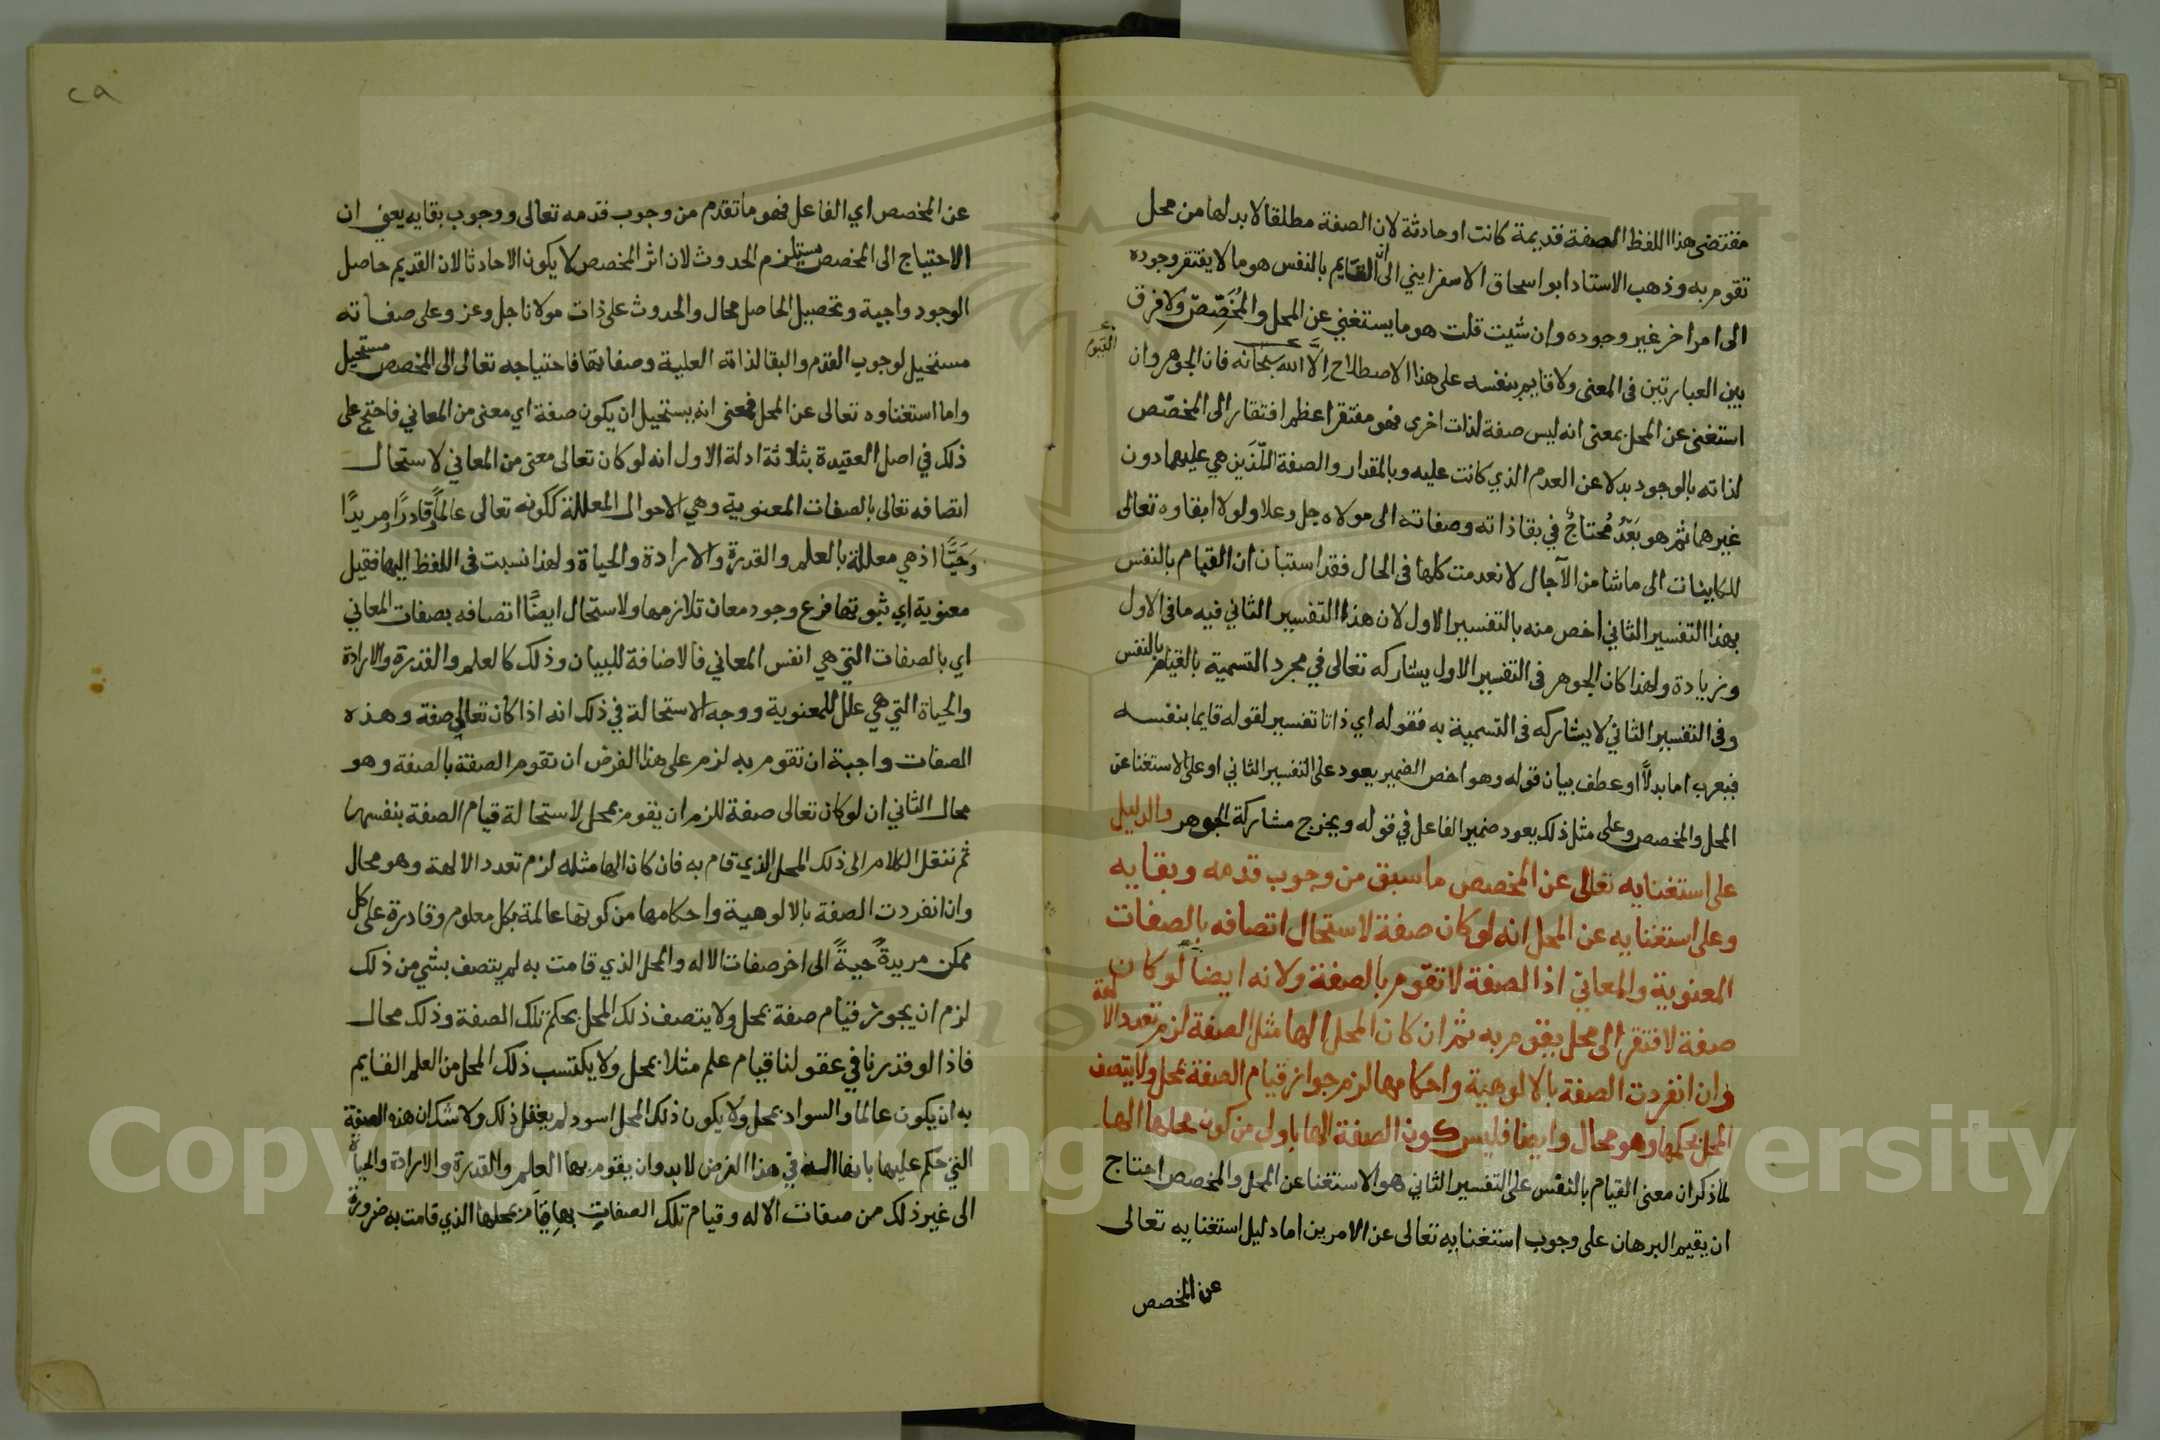 مقتضى هذا اللفظ الصفة قديمة كانت او حادثة لان الصفة مطلقا لا بد لها من محل
تقوم به وذهب الاستاد ابو اسحاق الاسفرايني الى ان القايم بالنفس هو ما لا يفتقر وجوده
الى امر اخر غير وجوده وان شيت قلت هو ما يستغني عن المحل والمُخَصِّص ولا فرق
بين العبارتين في المعنى ولا قايم بنفسه على هذا الاصطلاح اِلَّا الله سبحانه فان الجوهر وان
القيوم
استغنى عن المحل بمعنى انه ليس صفة لذات اخرى فهو مفتقر اعظم افتقار الى المخصّص
لذاته بالوجود بدلا عن العدم الذي كانت عليه وبالمقدار والصفة اللّذَين هي عليهما دون
غيرهما ثم هو بَعْدُ مُحتاجٌ في بقا ذاته وصفاته الى مولاه جل وعلا ولولا ابقاوه تعالى
للكاينات الى ما شا من الآجال لانعدمت كلها في الحال فقد استبان ان القيام بالنفس
بهذا التفسير الثاني اخص منه بالتفسير الاول لان هذا التفسير الثاني فيه ما في الاول
وزيادة ولهذا كان الجوهر في التفسير الاول يشاركه تعالى في مجرد التسمية بالقيام بالنفس
وفي التفسير الثاني لا يشاركه في التسمية به فقوله اي ذاتا تفسير لقوله قايما بنفسه
فيعرب اما بدلًا او عطف بيان قوله وهو اخص الضمير يعود على التفسير الثاني او على الاستغنا عن
المحل والمخصص وعلى مثل ذلك يعود ضمير الفاعل في قوله ويخرج مشاركة الجوهر والدليل
على استغنايه تعالى عن المخصص ما سبق من وجوب قدمه وبقايه
وعلى استغنايه عن المحل انه لو كان صفة لاستحال اتصافه بالصفات
المعنوية والمعاني اذ الصفة لا تقوم بالصفة ولانه ايضًا لو كان
صفة لافتقر الى محل يقوم به ثم ان كان المحل الها مثل الصفة لزم تعدد الالهة
وان انفردت الصفة بالالوهية واحكامها لزم جواز قيام الصفة بمحل ولا يتصف
المحل بحكمها وهو محال وايضا فليس كون الصفة الها باولى من كون محلها الها
لما ذكر ان معنى القيام بالنفس على التفسير الثاني هو الاستغنا عن المحل والمخصص احتاج
ان يقيم البرهان على وجوب استغنايه تعالى عن الامرين اما دليل استغنايه تعالى
عن المخصص
٢٩
عن المخصص اي الفاعل فهو ما تقدم من وجوب قدمه تعالى ووجوب بقايه يعني ان
الاحتياج الى المخصص يستلزم الحدوث لان اثر المخصص لا يكون الا حادثا لان القديم حاصل
الوجود واجبه وتحصيل الحاصل محال والحدوث على ذات مولانا جل وعز وعلى صفاته
مستحيل لوجوب القدم والبقا لذاته العلية وصفاتها فاحتياجه تعالى الى المخصص مستحيل
واما استغناوه تعالى عن المحل فمعنى انه يستحيل ان يكون صفة اي معنى من المعاني فاحتج على
ذلك في اصل العقيدة بثلاثة ادلة الاول انه لو كان تعالى معنى من المعاني لاستحال
اتصافه تعالى بالصفات المعنوية وهي الاحوال المعللة ككونه تعالى عالمًا وقادرًا ومريدًا
وَحَيًّا اذ هي معللة بالعلم والقدرة والارادة والحياة ولهذا نسبت في اللفظ اليها فقيل
معنوية اي ثبوتها فرع وجود معان تلازمها ولاستحال ايضًا اتصافه بصفات المعاني
اي بالصفات التي هي انفس المعاني فالاضافة للبيان وذلك كالعلم والقدرة والارادة
والحياة التي هي علل للمعنوية ووجه الاستحالة في ذلك انه اذا كان تعالى صفة وهذه
الصفات واجبة ان تقوم به لزم على هذا الفرض ان تقوم الصفة بالصفة وهو
محال الثاني ان لو كان تعالى صفة للزم ان يقوم بمحل لاستحالة قيام الصفة بنفسها
ثم ننقل الكلام الى ذلك المحل الذي قام به فان كان الها مثله لزم تعدد الالهة وهو محال
وان انفردت الصفة بالالوهية واحكامها من كونها عالمة بكل معلوم وقادرة على كل
ممكن مريدةً حيةً الى اخر صفات الاله والمحل الذي قامت به لم يتصف بشي من ذلك
لزم ان يجوز قيام صفة بمحل ولا يتصف ذلك المحل بحكم تلك الصفة وذلك محال
فاذا لو قدرنا في عقولنا قيام علم مثلا بمحل ولا يكتسب ذلك المحل من العلم القايم
به ان يكون عالما والسواد بمحل ولا يكون ذلك المحل اسود لم يعقل ذلك ولا شك ان هذه الصفة
التي حكم عليها بانها اله في هذا الفرض لا بد وان يقوم بها العلم والقدرة والارادة والحياة
الى غير ذلك من صفات الاله وقيام تلك الصفات بها قيام بمحلها الذي قامت به ضرورة
Copyright © King Saud University